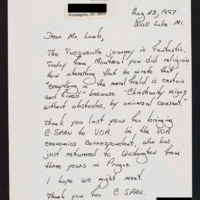 Washington, DC 20024
Aug 23, 1997
Dear Mr. Lamb,
The Tocqueville journey is fantastic.
Today from Montreal you did religion
How interesting that he wrote that
"everything in the moral field is certain
and fixed" because "Christianity reigns
without obstacles, by universal consent."
Thank you last year for bringing
C-SPAN to VOA. I'm the VOA
economics correspondent, who has
just returned to Washington from
three years in Prague.
I hope we might meet.
Thank you for C-SPAN.